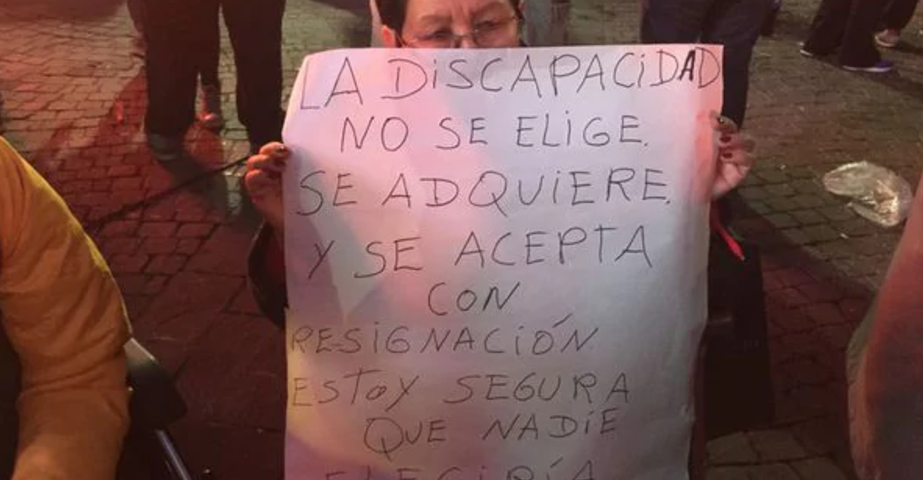 LA DiSCAPACiDAD
NO SE ELiGE.
SE ADQUiERE.
Y SE ACEPTA
CON
RESiGNACiÓN
ESTOY SEGURA
QUE NADiE
ELEGiRÍA